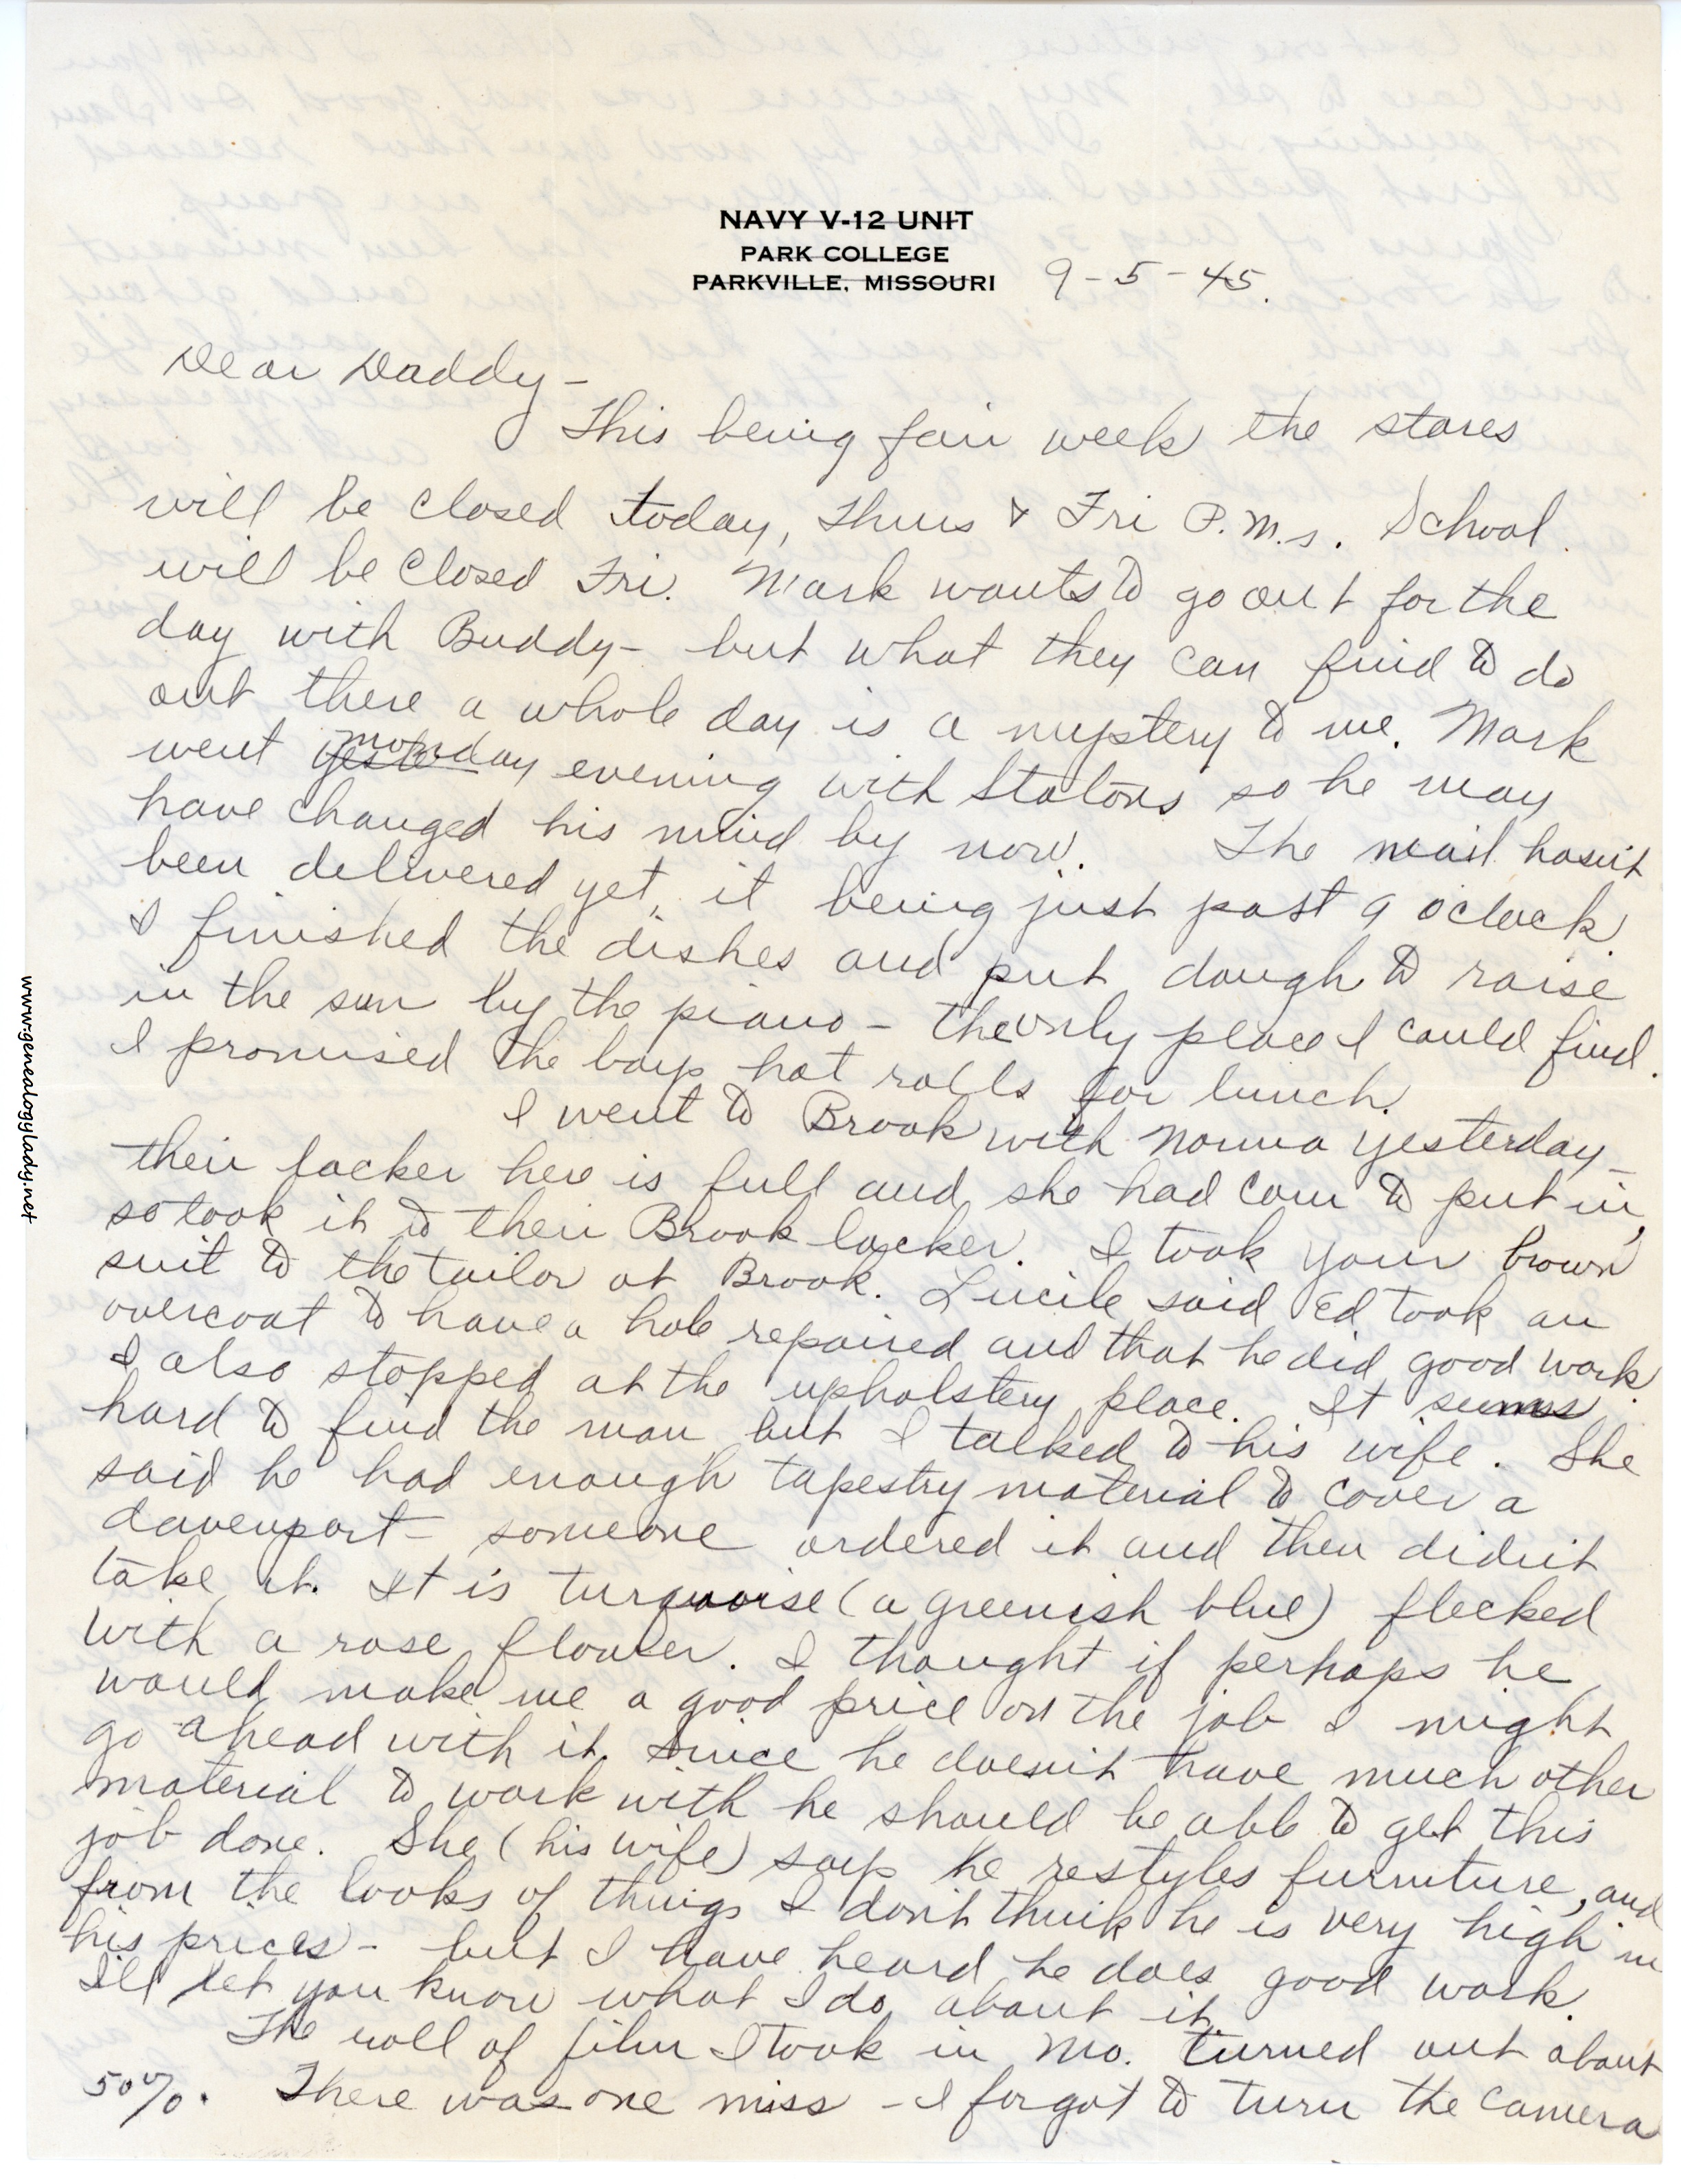 NAVY V-12 UNIT
PARK COLLEGE
PARKVILLE, MISSOURI 9-5-45.
Dear Daddy-
This being fair week the stores
will be closed today, Thurs & Fri P.M.s. School
will be closed Fri. Mark wants to go out for the
day with Buddy- but what they can find to do
out there a whole day is a mystery to me. Mark
went yesterday monday evening with Statons so he may
have changed his mind by now. The mail hasn't
been delivered yet, it being just past 9 oclock.
I finished the dishes and put dough to raise
in the sun by the piano - the only place I could find.
I promised the boys hot rolls for lunch.
I went to Brook with Norma yesterday-
their locker here is full and she had corn to put in,
so took it to their Brook locker. I took your brown
suit to the tailor at Brook. Lucile said Ed took an
overcoat to have a hole repaired and that he did good work.
I also stopped at the upholstery place. It seems
hard to find the man but I talked to his wife. She
said he had enough tapestry material to cover a
davenport- someone ordered it and then didn't
take it. It is turquoise (a greenish blue) flecked
with a rose flower. I thought if perhaps he
would make me a good price on the job I might
go ahead with it. Since he doesn't have much other
material to work with he should be able to get this
job done. She (his wife) says he restyles furniture, and
from the looks of things I don't think he is very high in
his prices - but I have heard he does good work.
I'll let you know what I do about it.
The roll of film I took in Mo. turned out about
50%. There was one miss - I forgot to turn the camera
www.genealogylady.net